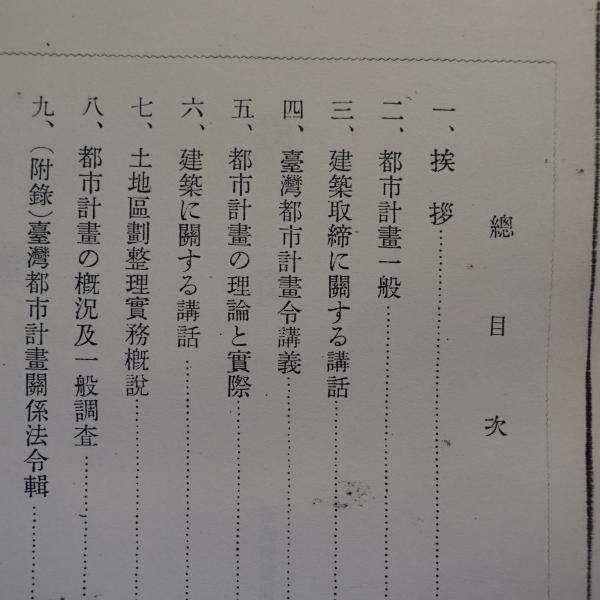 總目次
一、挨拶……………………
二、都市計畫一般……………………
三、建築取締に關する講話……………………
四、臺灣都市計畫令講義……………………
五、都市計畫の理論と實際……………………
六、建築に關する講話……………………
七、土地區劃整理實務槪說……………………
八、都市計畫の槪況及一般調査……………………
九、（附錄）臺灣都市計畫關係法令輯……………………